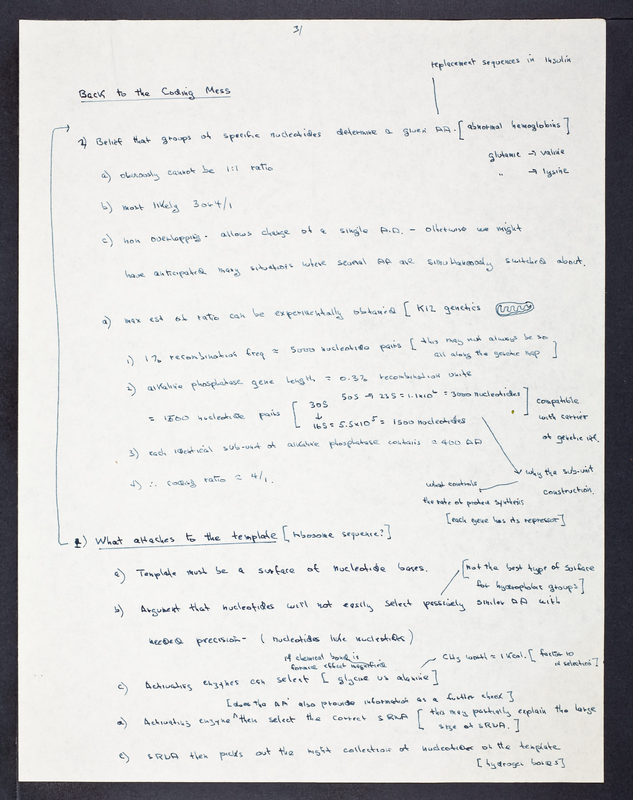 3/
replacement sequences in Insulin
Back to the Coding Mess
2) Belief that groups of specific nucleotides determine a given AA. [abnormal hemoglobins]
glutamic → valine
" → lysine
a) obviously cannot be 1:1 ratio
b) most likely 3 or 4/1
c) non overlapping - allows change of a single A.A. - otherwise we might
have anticipated many situations where several AA are simultaneously switched about.
d) max est of ratio can be experimentally obtained [K12 genetics
1) 1% recombination freq ≈ 5000 nucleotide pairs [this may not always be so
all along the genetic map]
2) alkaline phosphatase gene length = 0.3% recombination units
50S → 23S = 1.1x10⁶ = 3000 nucleotides]
= 1500 nucleotide pairs [30S
↓
16S = 5.5x10⁵ = 1500 nucleotides
compatible
with carrier
of genetic inf.
3) each identical sub-unit of alkaline phosphatase contains ≈ 400 AA
4) ∴ coding ratio ≈ 4/1.
why the sub-unit
construction.
what controls
the rate of protein synthesis
[each gene has its repressor]
1) What attaches to the template [ribosome sequence?]
a) Template must be a surface of nucleotide bases.
[not the best type of surface
for hydrophobic groups]
b) Argument that nucleotides will not easily select precisely similar AA with
needed precision - (nucleotides like nucleotides)
if chemical bond is
formed effect magnified
CH₃ worth ≈ 1 Kcal. [factor 10
in selection]
c) Activating enzymes can select [glycine vs alanine]
[does the AA also provide information as a further check]
d) Activating enzyme ^ then select the correct sRNA [this may partially explain the large
size of sRNA.]
e) sRNA then picks out the right collection of nucleotides of the template
[hydrogen bonds]